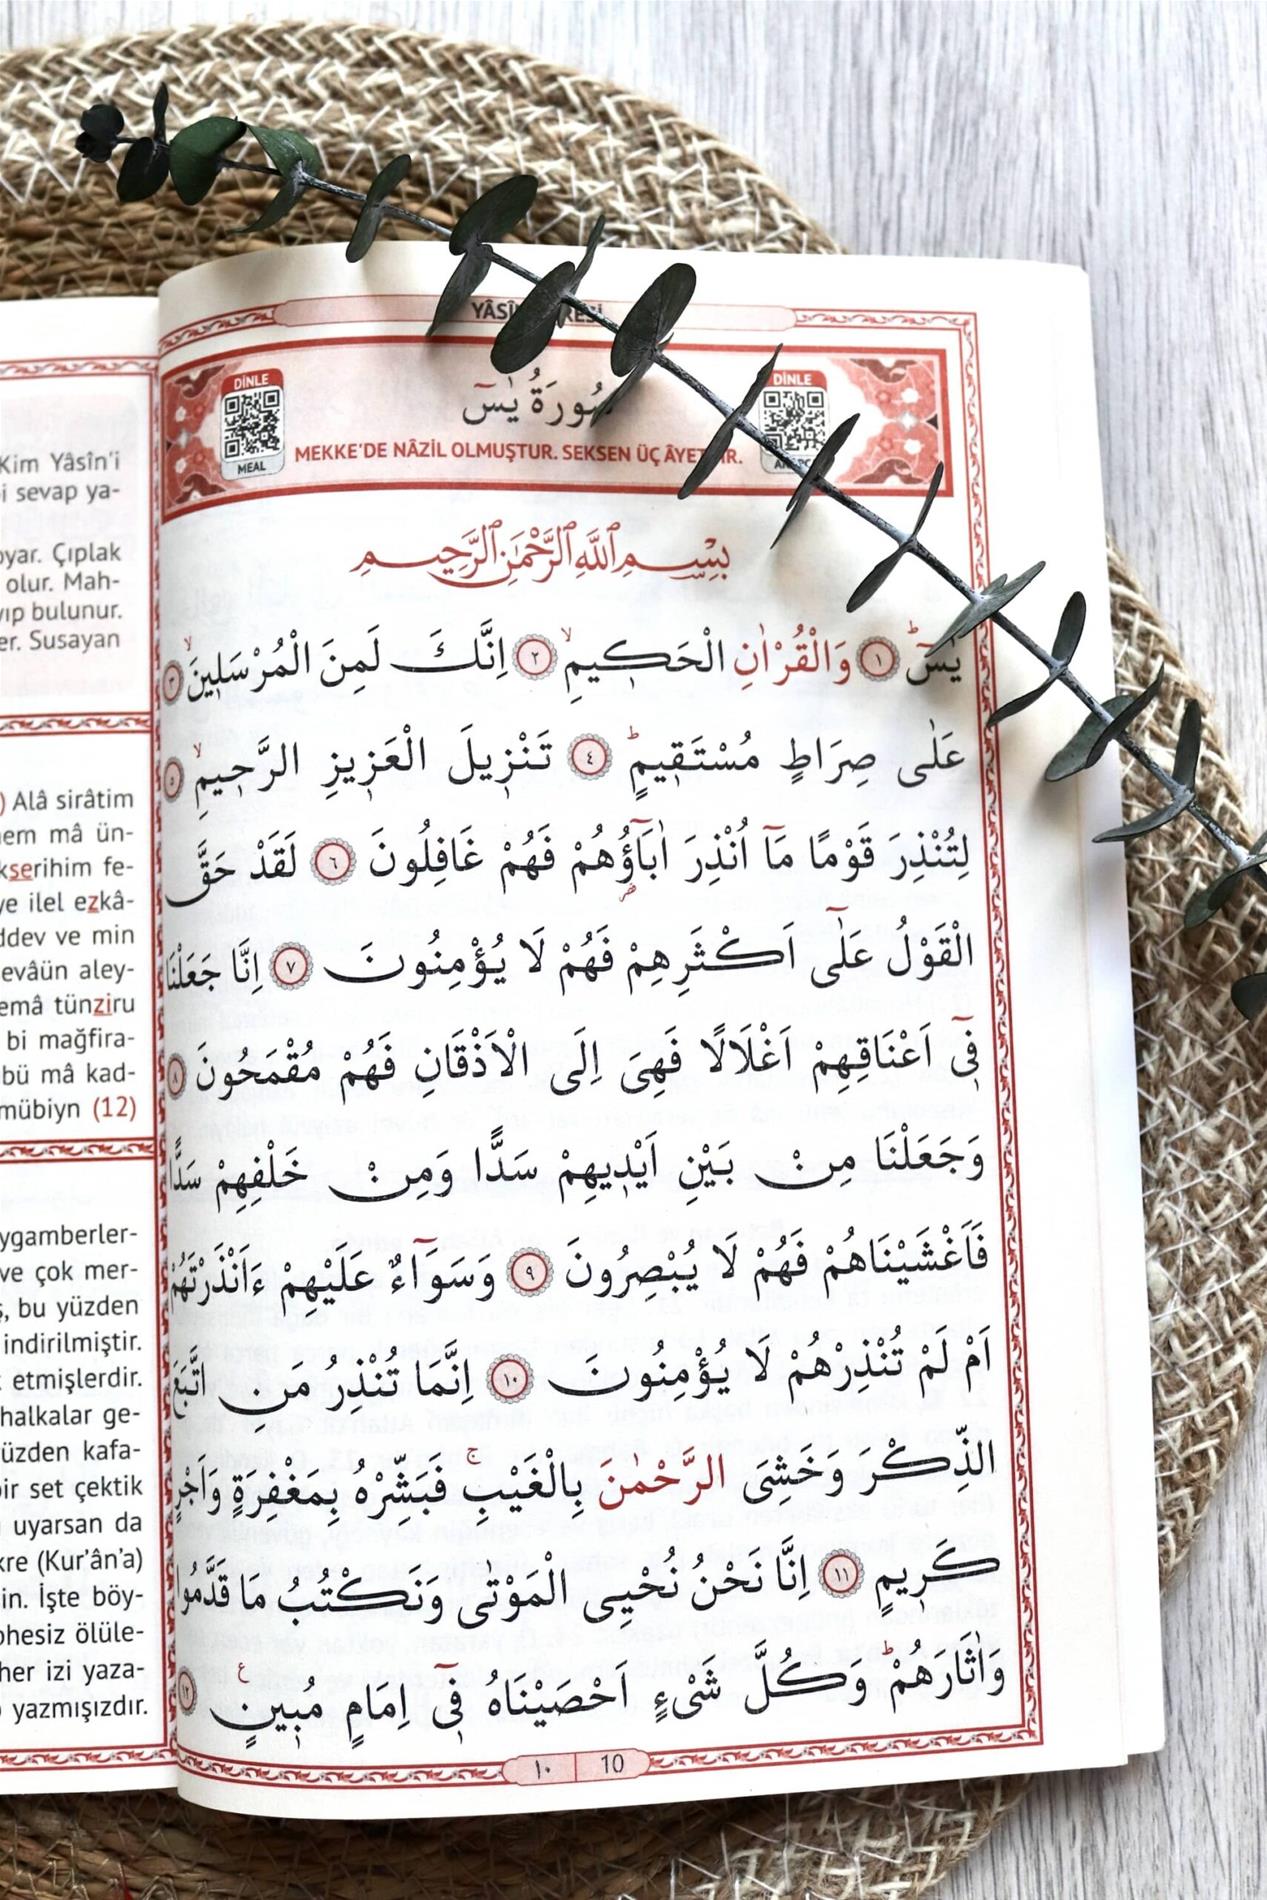 Kim Yâsîn'i
sevap ya-
oyar. Çıplak
olur. Mah-
yıp bulunur.
er. Susayan
) Alâ sirâtim
nem mâ ün-
kserihim fe-
ye ilel ezkâ-
ddev ve min
sevâün aley-
emâ tünziru
bi mağfira-
übü mâ kad-
mübiyn (12)
ygamberler-
ve çok mer-
ş, bu yüzden
indirilmiştir.
etmişlerdir.
halkalar ge-
üzden kafa-
bir set çektik
uyarsan da
kre (Kur'ân'a)
sin. İşte böy-
phesiz ölüle-
her izi yaza-
yazmışızdır.
YÂSÎN
DİNLE
MEAL
سُورَةُ يٰسٓ
DİNLE
MEKKE'DE NÂZİL OLMUŞTUR. SEKSEN ÜÇ ÂYETTİR.
بِسْمِ اللّٰهِ الرَّحْمٰنِ الرَّحِيمِ
يٰسٓ ۜ ﴿١﴾ وَالْقُرْاٰنِ الْحَكِيمِ ۙ ﴿٢﴾ اِنَّكَ لَمِنَ الْمُرْسَلِينَ ۙ ﴿٣﴾
عَلٰى صِرَاطٍ مُسْتَقِيمٍ ۜ ﴿٤﴾ تَنْزِيلَ الْعَزِيزِ الرَّحِيمِ ۙ ﴿٥﴾
لِتُنْذِرَ قَوْمًا مَٓا اُنْذِرَ اٰبَٓاؤُ۬هُمْ فَهُمْ غَافِلُونَ ﴿٦﴾ لَقَدْ حَقَّ
الْقَوْلُ عَلٰٓى اَكْثَرِهِمْ فَهُمْ لَا يُؤْمِنُونَ ﴿٧﴾ اِنَّا جَعَلْنَا
فِٓي اَعْنَاقِهِمْ اَغْلَالًا فَهِيَ اِلَى الْاَذْقَانِ فَهُمْ مُقْمَحُونَ ﴿٨﴾
وَجَعَلْنَا مِنْ بَيْنِ اَيْدِيهِمْ سَدًّا وَمِنْ خَلْفِهِمْ سَدًّا
فَاَغْشَيْنَاهُمْ فَهُمْ لَا يُبْصِرُونَ ﴿٩﴾ وَسَوَٓاءٌ عَلَيْهِمْ ءَاَنْذَرْتَهُمْ
اَمْ لَمْ تُنْذِرْهُمْ لَا يُؤْمِنُونَ ﴿١٠﴾ اِنَّمَا تُنْذِرُ مَنِ اتَّبَعَ
الذِّكْرَ وَخَشِيَ الرَّحْمٰنَ بِالْغَيْبِ ۚ فَبَشِّرْهُ بِمَغْفِرَةٍ وَاَجْرٍ
كَرِيمٍ ﴿١١﴾ اِنَّا نَحْنُ نُحْيِي الْمَوْتٰى وَنَكْتُبُ مَا قَدَّمُوا
وَاٰثَارَهُمْ ۜ وَكُلَّ شَيْءٍ اَحْصَيْنَاهُ فِٓي اِمَامٍ مُبِينٍ ۟ ﴿١٢﴾
١٠ 10